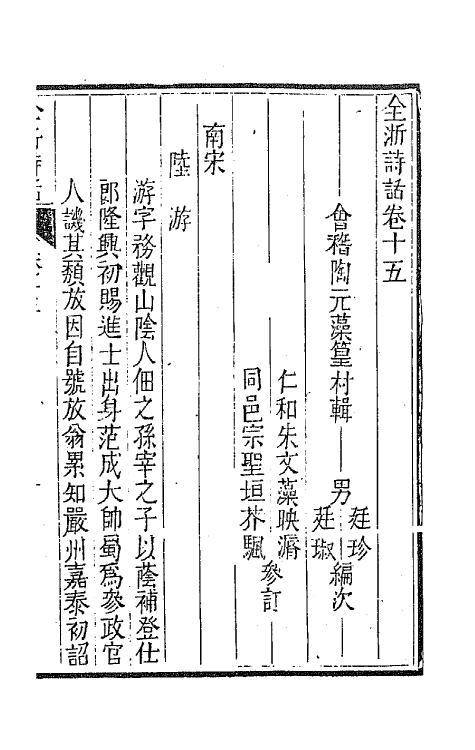 全浙詩話卷十五
會稽陶元藻篁村輯 男廷珍
廷埱編次
仁和朱文藻映漘
同邑宗聖垣芥颿參訂
南宋
陸游
游字務觀山陰人佃之孫宰之子以蔭補登仕
郎隆興初賜進士出身范成大帥蜀爲參政官
人譏其頽放因自號放翁累知嚴州嘉泰初詔